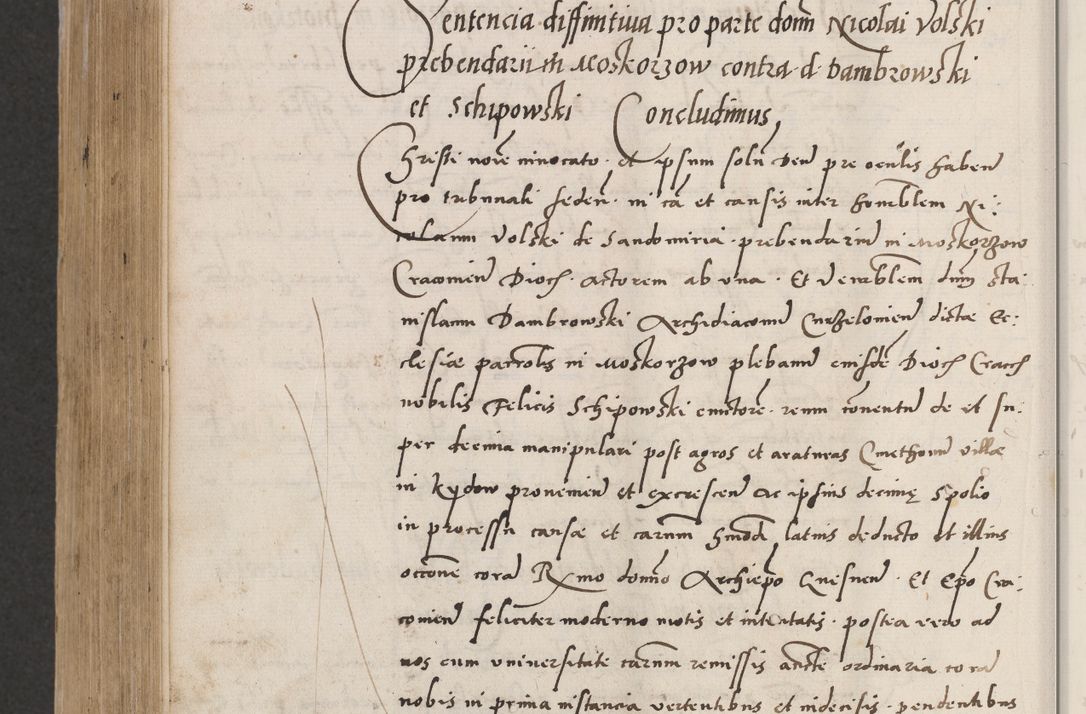 Sentencia diffinitiua pro parte domi Nicolai Volski
prebendarii in Moskorzow contra d. Dambrowski
et Schipowski Concludimus
Christi noie inuocato. et ipsum solu Deu pre oculis haben
pro tribunali seden. in ca et causis inter honoblem Ni:
colaum Volski de Sandomiria. prebendariu in Moskorzow
Cracouien Dioch. actorem ab vna. Et Venerablem dnm Sta
nislaum Dambrowski Archidiaconu Curzelouien dictae Ec:
clesiae parrolis in Moskorzow plebanu eiusde Dioch Cracch
nobilis Felicis Schipowski euictore. reum conentu de et su:
per decima manipulari post agros et araturas Cmethonu villae
in kydow prouenien et excrescen ac ipsius decimę spolio
in processu causae et carum hmodi latius deducto et illius
occone cora Rmo domno Archiepo Gnesnen. Et Epo Cra:
couien feliciter moderno motis et intentatis. postea vero ad
nos cum vniuersitate carum remissis aucte ordinaria cora
nobis in prima instancia vertentibus et indecisis. pendentibus